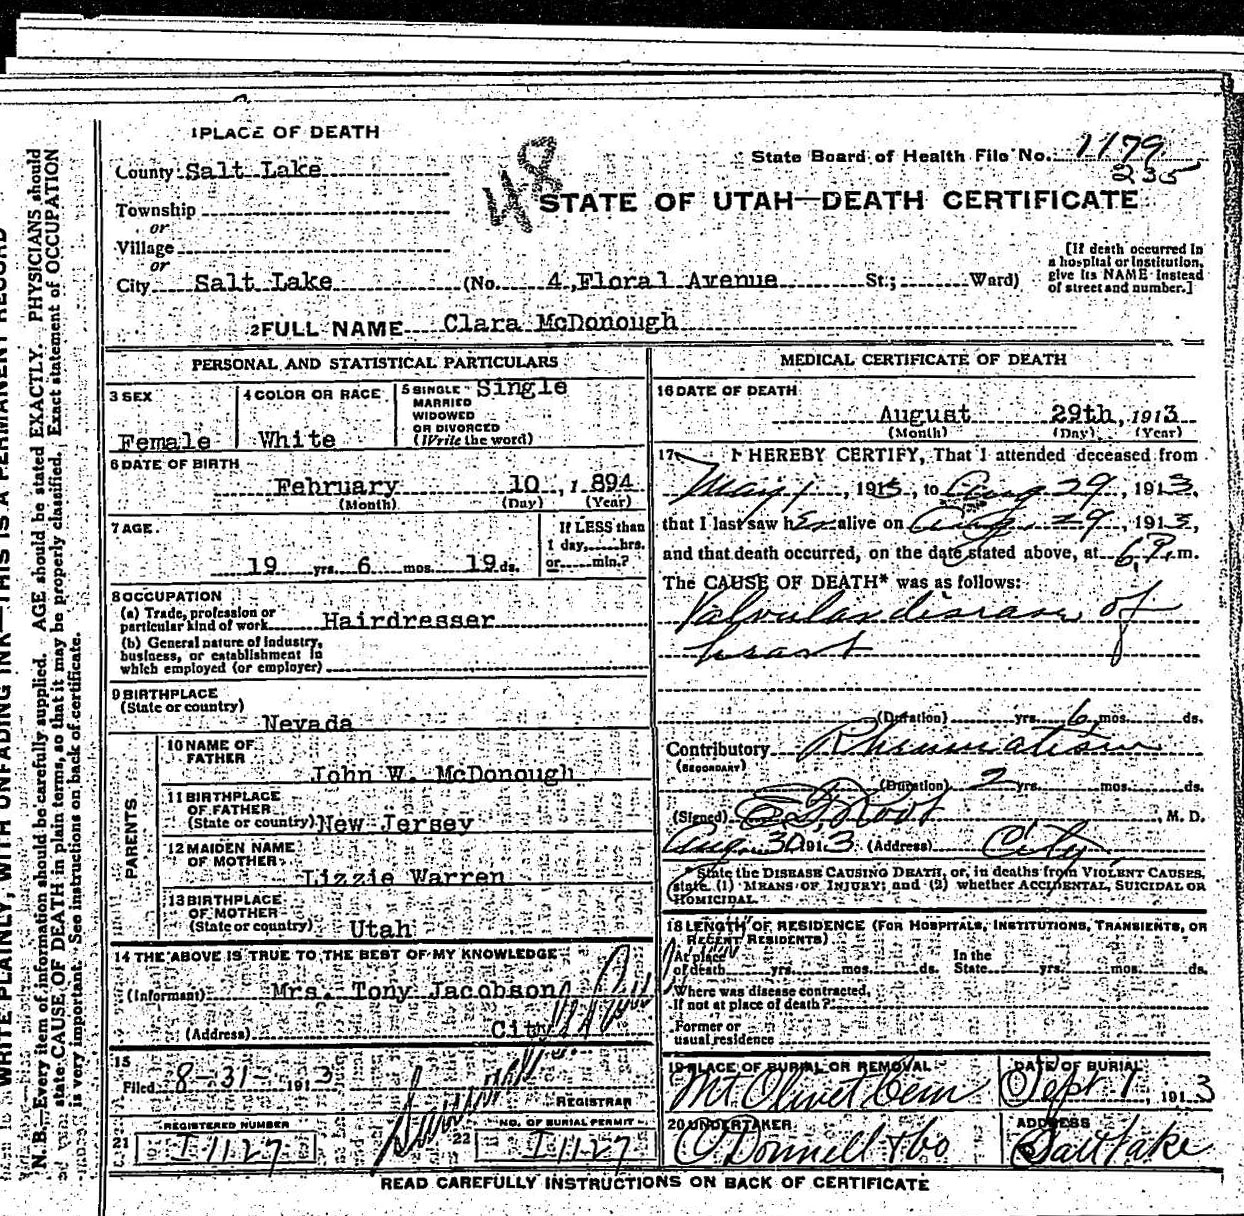 1 PLACE OF DEATH
County Salt Lake
Township
or
Village
or
City Salt Lake (No. 4, Floral Avenue St.; Ward)
48
State Board of Health File No. 1179
235
STATE OF UTAH—DEATH CERTIFICATE
[If death occurred in
a hospital or institution,
give its NAME instead
of street and number.]
2 FULL NAME Clara McDonough
PERSONAL AND STATISTICAL PARTICULARS
3 SEX
Female
4 COLOR OR RACE
White
5 SINGLE Single
MARRIED
WIDOWED
OR DIVORCED
(Write the word)
6 DATE OF BIRTH
February 10, 1894
(Month) (Day) (Year)
7 AGE
19 yrs. 6 mos. 19 ds.
If LESS than
1 day, hrs.
or min.?
8 OCCUPATION
(a) Trade, profession or
particular kind of work Hairdresser
(b) General nature of industry,
business, or establishment in
which employed (or employer)
9 BIRTHPLACE
(State or country)
Nevada
PARENTS
10 NAME OF
FATHER
John W. McDonough
11 BIRTHPLACE
OF FATHER
(State or country) New Jersey
12 MAIDEN NAME
OF MOTHER
Lizzie Warren
13 BIRTHPLACE
OF MOTHER
(State or country) Utah
14 THE ABOVE IS TRUE TO THE BEST OF MY KNOWLEDGE
(Informant) Mrs. Tony Jacobson
(Address) City
15
Filed 8-31- 1913
REGISTRAR
21 REGISTERED NUMBER
I-1127
22 NO. OF BURIAL PERMIT
I-1127
MEDICAL CERTIFICATE OF DEATH
16 DATE OF DEATH
August 29th, 1913
(Month) (Day) (Year)
17 I HEREBY CERTIFY, That I attended deceased from
May 1, 1913, to Aug 29, 1913,
that I last saw her alive on Aug. 29, 1913,
and that death occurred, on the date stated above, at 6 P. m.
The CAUSE OF DEATH* was as follows:
Valvular disease of
heart
(Duration) yrs. 6 mos. ds.
Contributory Rheumatism
(SECONDARY)
(Duration) 2 yrs. mos. ds.
(Signed) Root, M. D.
Aug. 30, 1913 (Address) City
* State the DISEASE CAUSING DEATH, or, in deaths from VIOLENT CAUSES,
state (1) MEANS OF INJURY; and (2) whether ACCIDENTAL, SUICIDAL OR
HOMICIDAL.
18 LENGTH OF RESIDENCE (FOR HOSPITALS, INSTITUTIONS, TRANSIENTS, OR
RECENT RESIDENTS)
At place
of death yrs. mos. ds.
In the
State yrs. mos. ds.
Where was disease contracted,
If not at place of death?
Former or
usual residence
19 PLACE OF BURIAL OR REMOVAL
Mt Olivet Cem
DATE OF BURIAL
Sept 1, 1913
20 UNDERTAKER
O'Donnell & Co
ADDRESS
Salt Lake
READ CAREFULLY INSTRUCTIONS ON BACK OF CERTIFICATE
WRITE PLAINLY, WITH UNFADING INK—THIS IS A PERMANENT RECORD
N. B.—Every item of information should be carefully supplied. AGE should be stated EXACTLY. PHYSICIANS should
state CAUSE OF DEATH in plain terms, so that it may be properly classified. Exact statement of OCCUPATION
is very important. See instructions on back of certificate.